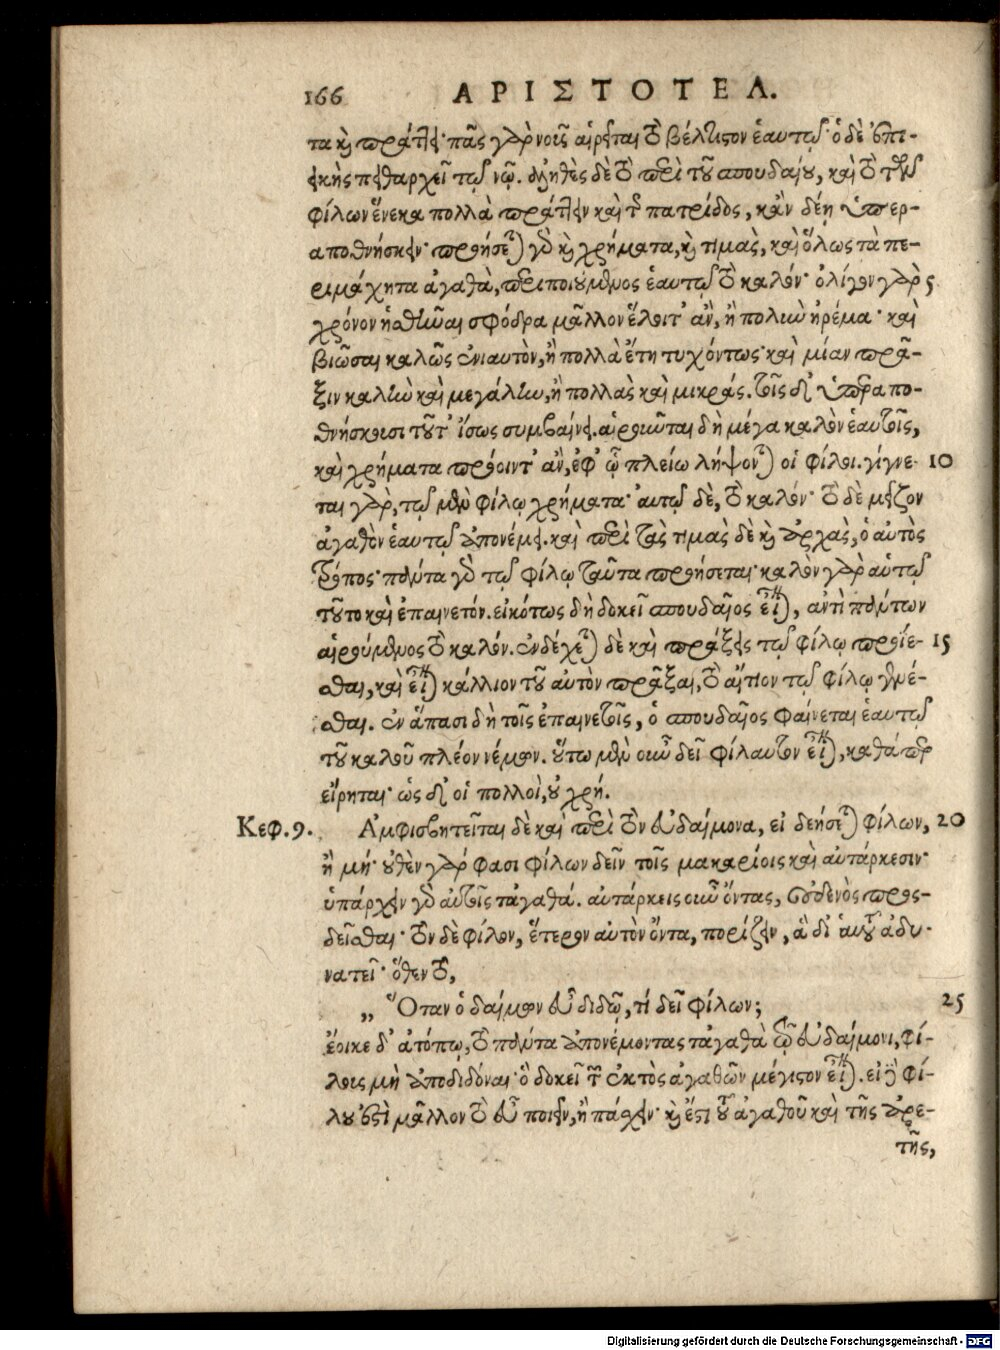 166 ΑΡΙΣΤΟΤΕΛ.
τα καὶ πράττει· πᾶς γὰρ νοῦς αἱρεῖται τὸ βέλτιστον ἑαυτῷ· ὁ δὲ ἐπι-
εικὴς πειθαρχεῖ τῷ νῷ. ἀληθὲς δὲ τὸ περὶ τοῦ σπουδαίου, καὶ τὸ τῶν
φίλων ἕνεκα πολλὰ πράττειν καὶ τῆς πατρίδος, κἂν δέῃ ὑπερ-
αποθνήσκειν· προήσεται γὰρ καὶ χρήματα, καὶ τιμὰς, καὶ ὅλως τὰ πε-
ριμάχητα ἀγαθὰ, περιποιούμενος ἑαυτῷ τὸ καλόν· ὀλίγον γὰρ 5
χρόνον ἡσθῆναι σφόδρα μᾶλλον ἕλοιτ' ἂν, ἢ πολὺν ἠρέμα· καὶ
βιῶσαι καλῶς ἐνιαυτὸν, ἢ πολλὰ ἔτη τυχόντως· καὶ μίαν πρᾶ-
ξιν καλὴν καὶ μεγάλην, ἢ πολλὰς καὶ μικράς. τοῖς δ' ὑπεραπο-
θνήσκουσι τοῦτ' ἴσως συμβαίνει. αἱροῦνται δὴ μέγα καλὸν ἑαυτοῖς,
καὶ χρήματα πρόοιντ' ἂν, ἐφ' ᾧ πλείω λήψονται οἱ φίλοι. γίγνε- 10
ται γὰρ, τῷ μὲν φίλῳ χρήματα· αὐτῷ δὲ, τὸ καλόν· τὸ δὲ μεῖζον
ἀγαθὸν ἑαυτῷ ἀπονέμει. καὶ περὶ τὰς τιμὰς δὲ καὶ ἀρχὰς, ὁ αὐτὸς
τρόπος· πάντα γὰρ τῷ φίλῳ ταῦτα προήσεται· καλὸν γὰρ αὑτῷ
τοῦτο καὶ ἐπαινετόν. εἰκότως δὴ δοκεῖ σπουδαῖος εἶναι, ἀντὶ πάντων
αἱρούμενος τὸ καλόν. ἐνδέχεται δὲ καὶ πράξεις τῷ φίλῳ προΐε- 15
σθαι, καὶ εἶναι κάλλιον τοῦ αὐτὸν πρᾶξαι, τὸ αἴτιον τῷ φίλῳ γενέ-
σθαι. ἐν ἅπασι δὴ τοῖς ἐπαινετοῖς, ὁ σπουδαῖος φαίνεται ἑαυτῷ
τοῦ καλοῦ πλέον νέμων. οὕτω μὲν οὖν δεῖ φίλαυτον εἶναι, καθάπερ
εἴρηται· ὡς δ' οἱ πολλοὶ, οὐ χρή.
Κεφ. 9. Ἀμφισβητεῖται δὲ καὶ περὶ τὸν εὐδαίμονα, εἰ δεήσεται φίλων, 20
ἢ μή· οὐθὲν γάρ φασι φίλων δεῖν τοῖς μακαρίοις καὶ αὐτάρκεσιν·
ὑπάρχειν γὰρ αὐτοῖς τἀγαθά. αὐτάρκεις οὖν ὄντας, οὐδενὸς προς-
δεῖσθαι· τὸν δὲ φίλον, ἕτερον αὐτὸν ὄντα, πορίζειν, ἃ δι' αὑτοῦ ἀδυ-
νατεῖ· ὅθεν τὸ,
„ Ὅταν ὁ δαίμων εὖ διδῷ, τί δεῖ φίλων; 25
ἔοικε δ' ἀτόπῳ, τὸ πάντα ἀπονέμοντας τἀγαθὰ τῷ εὐδαίμονι, φί-
λους μὴ ἀποδιδόναι· ὃ δοκεῖ τῶν ἐκτὸς ἀγαθῶν μέγιστον εἶναι. εἴ τε φί-
λου ἐστὶ μᾶλλον τὸ εὖ ποιεῖν, ἢ πάσχειν· καὶ ἔστι τοῦ ἀγαθοῦ καὶ τῆς ἀρε-
τῆς,
Digitalisierung gefördert durch die Deutsche Forschungsgemeinschaft - DFG